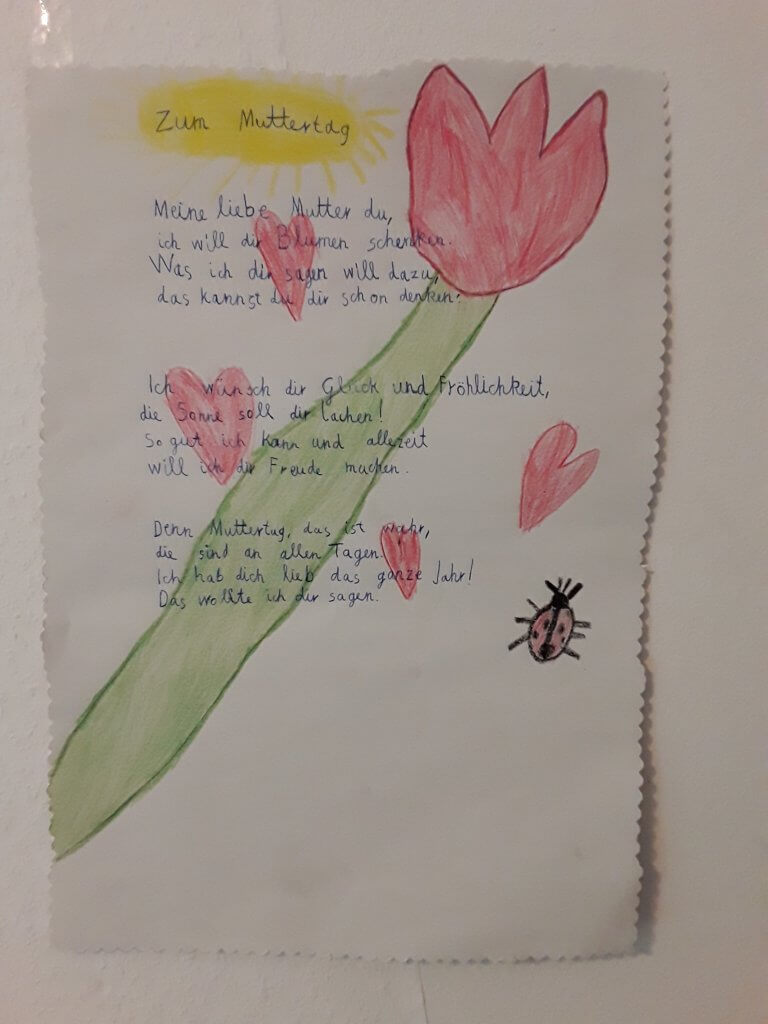 Zum Muttertag
Meine liebe Mutter du,
ich will dir Blumen schenken.
Was ich dir sagen will dazu,
das kannst du dir schon denken:
Ich wünsch dir Glück und Fröhlichkeit,
die Sonne soll dir lachen!
So gut ich kann und allezeit
will ich dir Freude machen.
Denn Muttertag, das ist wahr,
die sind an allen Tagen.
Ich hab dich lieb das ganze Jahr!
Das wollte ich dir sagen.